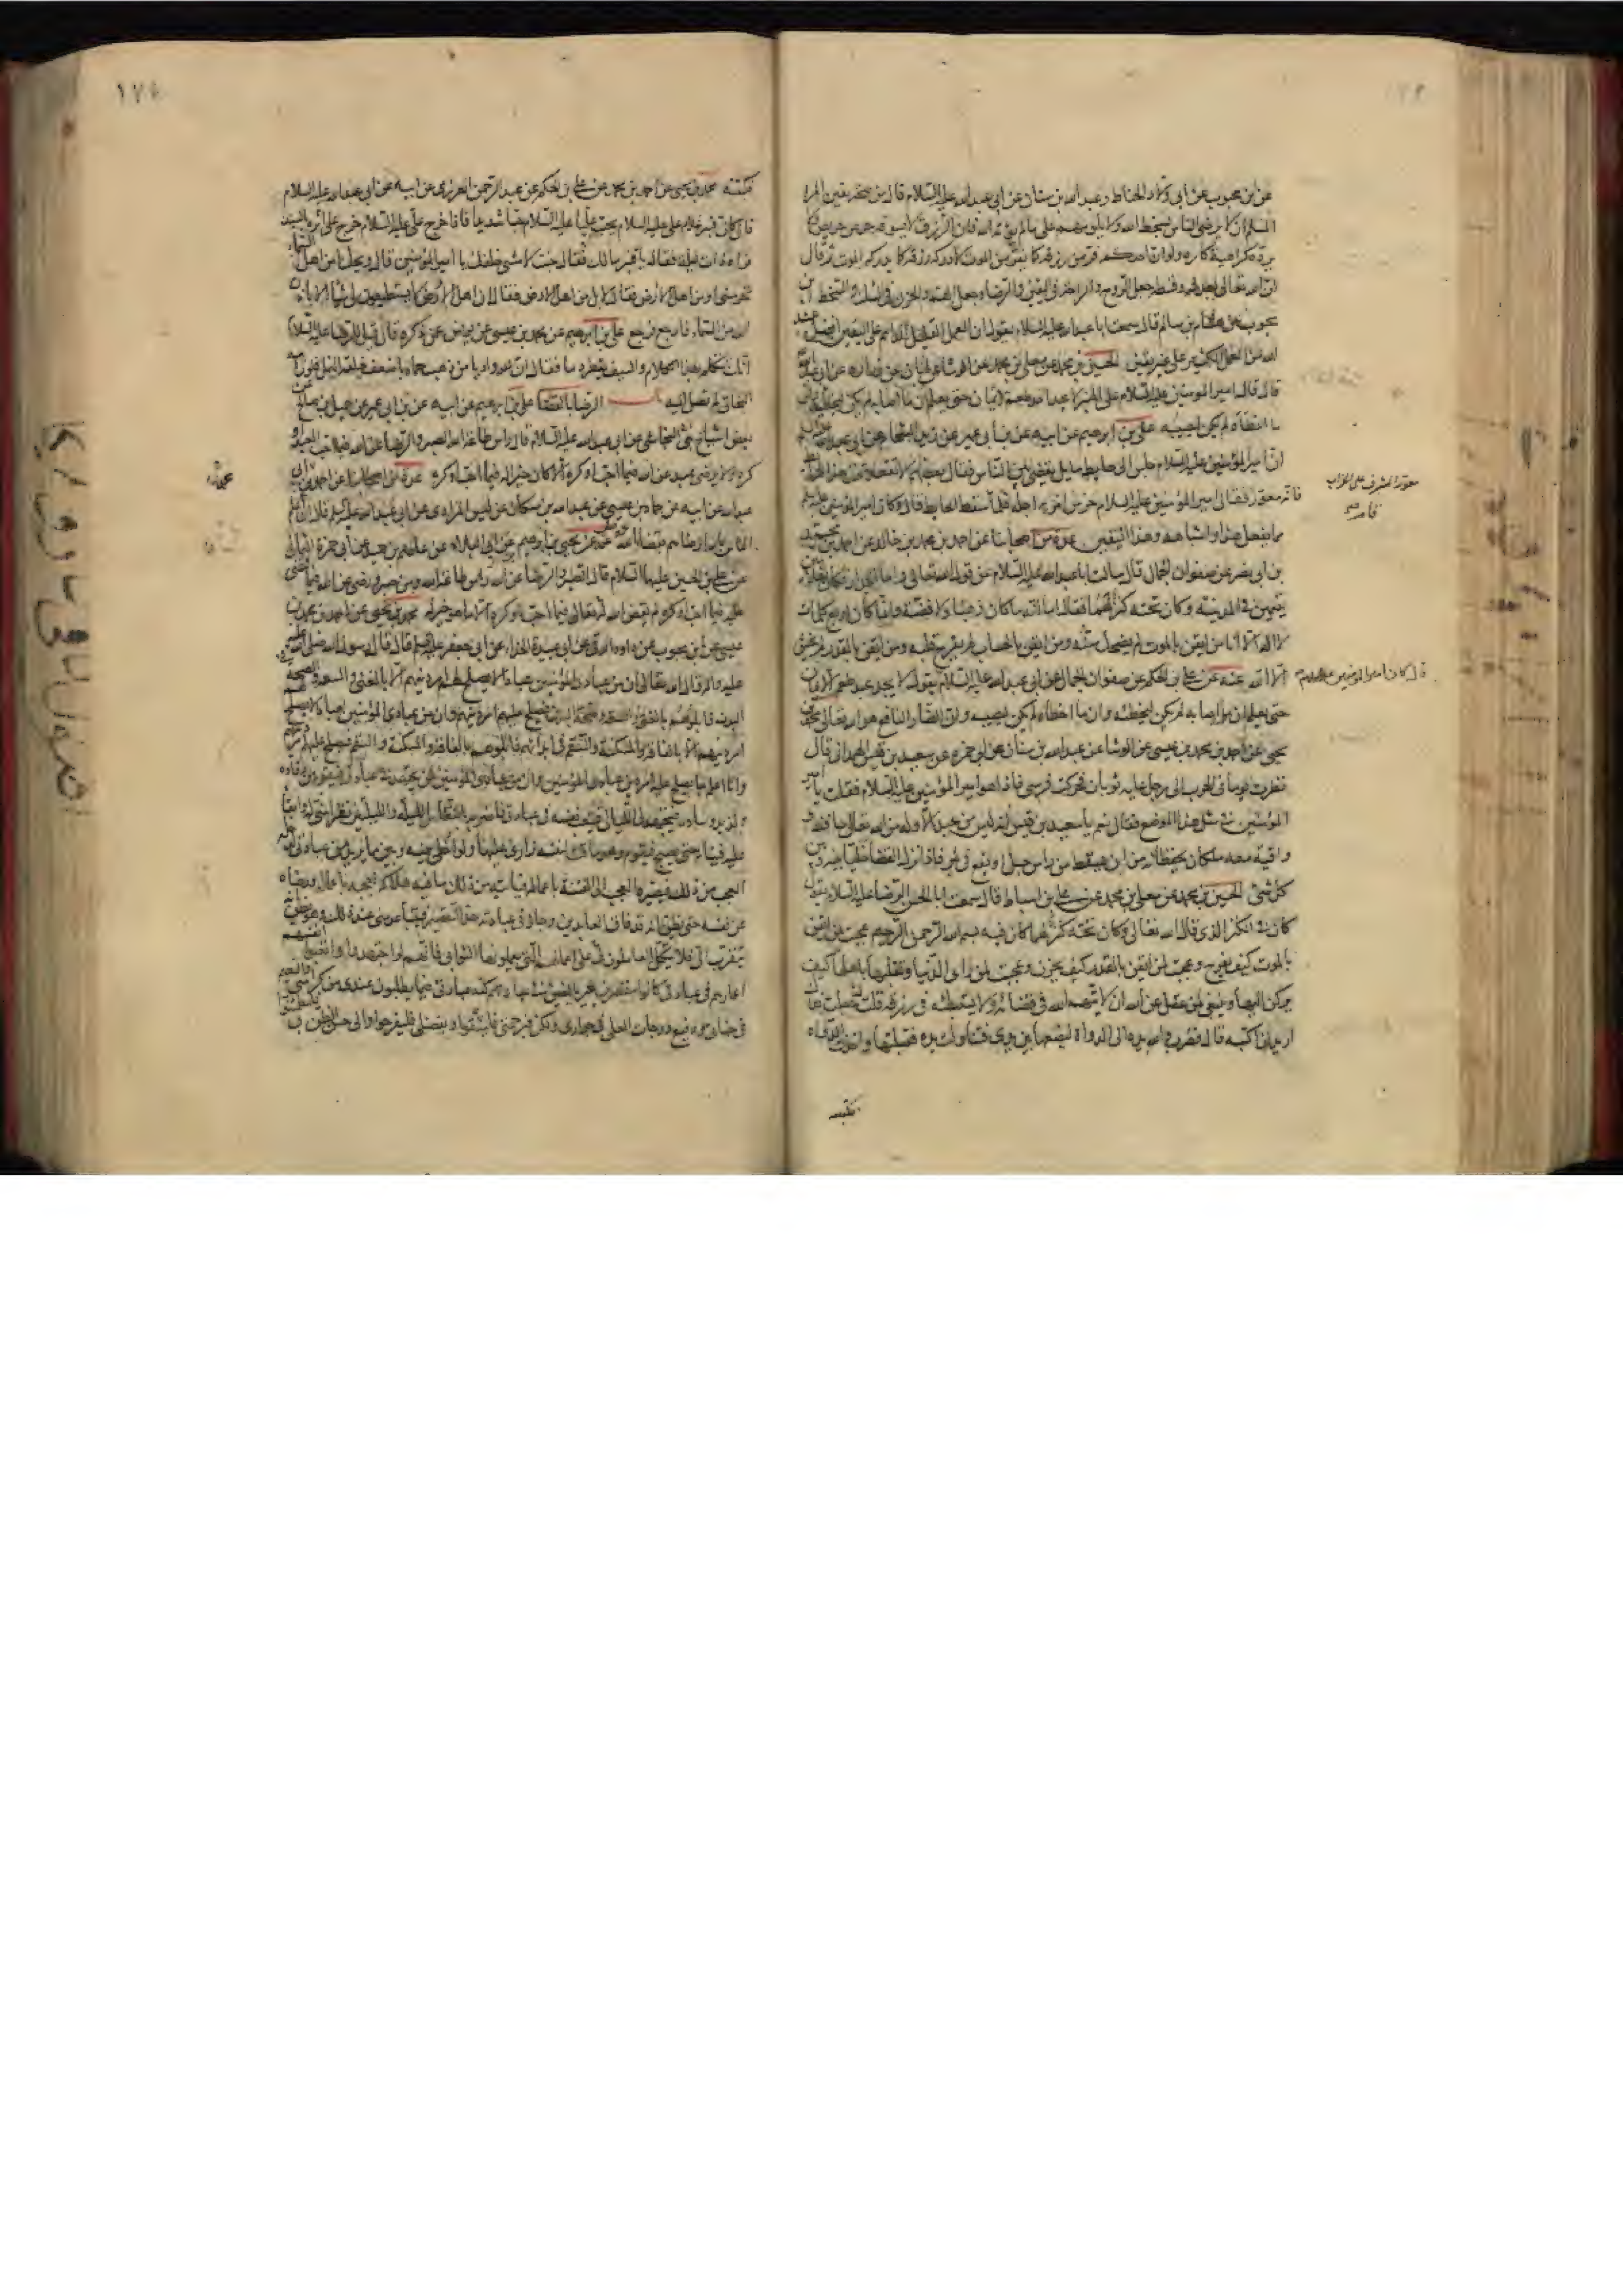 عن ابن محبوب عن ابي ولاد الحناط وعبد الله بن سنان عن ابي عبد الله عليه السلام قال من صحة يقين المرء
المسلم ان لا يرضى الناس بسخط الله ولا يلومهم على ما لم يؤته الله فان الرزق لا يسوقه حرص حريص ولا
يرده كراهية كاره ولو ان احدكم فر من رزقه كما يفر من الموت لادركه رزقه كما يدركه الموت ثم قال
ان الله تعالى بعدله وقسطه جعل الروح والراحة في اليقين والرضا وجعل الهم والحزن في الشك والسخط ابن
محبوب عن هشام بن سالم قال سمعت ابا عبد الله عليه السلام يقول ان العمل القليل الدائم على اليقين افضل عند
الله من العمل الكثير على غير يقين الحسين بن محمد عن معلى بن محمد عن الوشاء عن ابان عن زرارة عن ابي عبد الله
قال قال امير المؤمنين عليه السلام على المنبر لا يجد احد طعم الايمان حتى يعلم ان ما اصابه لم يكن ليخطئه وان
ما اخطأه لم يكن ليصيبه علي بن ابراهيم عن ابيه عن ابن ابي عمير عن زيد الشحام عن ابي عبد الله
ان امير المؤمنين عليه السلام جلس الى حايط مايل يقضي بين الناس فقال بعضهم لا تقعد تحت هذا الحايط
فانه معور فقال امير المؤمنين عليه السلام حرس امرء اجله فلما سقط الحايط قال وكان امير المؤمنين عليه السلم
مما يفعل هذا واشباهه وهذا اليقين عدة من اصحابنا عن احمد بن محمد بن خالد عن احمد بن محمد
بن ابي نصر عن صفوان الجمال قال سالت ابا عبد الله عليه السلام عن قول الله تعالى واما الجدار فكان لغلامين
يتيمين في المدينة وكان تحته كنز لهما فقال اما انه ما كان ذهبا ولا فضة وانما كان اربع كلمات
لا اله الا انا من ايقن بالموت لم يضحك سنه ومن ايقن بالحساب لم يفرح قلبه ومن ايقن بالقدر لم يخش
الا الله عنه عن علي بن الحكم عن صفوان الجمال عن ابي عبد الله عليه السلام يقول لا يجد عبد طعم الايمان
حتى يعلم ان ما اصابه لم يكن ليخطئه وان ما اخطاه لم يكن ليصيبه وان الضار النافع هو الله تعالى محمد بن
يحيى عن احمد بن محمد بن عيسى عن الوشا عن عبد الله بن سنان عن ابي حمزه عن سعيد بن قيس الهمداني قال
نظرت يوما في الحرب الى رجل عليه ثوبان فحركت فرسي فاذا هو امير المؤمنين عليه السلام فقلت يا امير
المؤمنين في مثل هذا الموضع فقال نعم يا سعيد بن قيس انه ليس من عبد الا وله من الله تعالى حافظ و
واقية معه ملكان يحفظانه من ان يسقط من راس جبل او يقع في بئر فاذا نزل القضا خليا بينه وبين
كل شئ الحسين بن محمد عن معلى بن محمد عن علي بن اسباط قال سمعت ابا الحسن الرضا عليه السلام يقول
كان في الكنز الذي قال الله تعالى وكان تحته كنز لهما كان فيه بسم الله الرحمن الرحيم عجبت لمن ايقن
بالموت كيف يفرح وعجبت لمن ايقن بالقدر كيف يحزن وعجبت لمن راى الدنيا وتقلبها باهلها كيف
يركن اليها وينبغي لمن عقل عن الله ان لا يتهم الله في قضائه ولا يستبطئه في رزقه فقلت جعلت فداك
اريد ان اكتبه قال فضرب والله يده الى الدواة ليضعها بين يدي فتناولت يده فقبلتها واخذت الدواة
معور المشرف على الخراب
قامو
قال كان امير المؤمنين عليه السلام
فكتبته محمد بن يحيى عن احمد بن محمد عن علي بن الحكم عن عبد الرحمن العرزمي عن ابيه عن ابي عبد الله عليه السلام
قال كان قنبر غلام علي عليه السلام يحب عليا عليه السلام حبا شديدا فاذا خرج علي عليه السلام خرج على اثره بالسيف
فرآه ذات ليلة فقال يا قنبر مالك فقال جئت لامشي خلفك يا امير المؤمنين قال ويحك امن اهل السماء
تحرسني او من اهل الارض فقال لا بل من اهل الارض فقال ان اهل الارض لا يستطيعون لي شيئا الا باذن
الله من السماء فارجع فرجع علي بن ابراهيم عن محمد بن عيسى عن يونس عن ذكره قال قيل للرضا عليه السلام
انك تتكلم بهذا الكلام والسيف يقطر دما فقال ان لله واديا من ذهب حماه باضعف خلقه النمل فلو رامه
البخاتي لم تصل اليه باب الرضا بالقضا علي بن ابراهيم عن ابيه عن ابن ابي عمير عن جميل بن صالح عن
بعض اشياخ بني النجاشي عن ابي عبد الله عليه السلام قال راس طاعة الله الصبر والرضا عن الله فيما احب العبد او
كره ولا يرضى عبد عن الله فيما احب او كره الا كان خيرا له فيما احب او كره عدة من اصحابنا عن احمد بن ابي
عبد الله عن ابيه عن حماد بن عيسى عن عبد الله بن مسكان عن ليث المرادي عن ابي عبد الله عليه السلم قال ان اعلم
الناس بالله ارضاهم بقضاء الله عنه عن يحيى بن ابراهيم عن ابي البلاد عن عاصم بن حميد عن ابي حمزة الثمالي
عن علي بن الحسين عليهما السلام قال الصبر والرضا عن الله راس طاعة الله ومن صبر ورضي عن الله فيما قضى
عليه فيما احب او كره لم يقض الله تعالى فيما احب او كره الا ما هو خير له محمد بن يحيى عن احمد بن محمد بن
عيسى عن ابن محبوب عن داود الرقي عن ابي عبيدة الحذاء عن ابي جعفر عليه السلم قال قال رسول الله صلى الله عليه
عليه واله قال الله تعالى ان من عبادي المؤمنين عبادا لا يصلح لهم امر دينهم الا بالغنى والسعة والصحة في
البدن فابلوهم بالغنى والسعة وصحة البدن فيصلح عليهم امر دينهم وان من عبادي المؤمنين لعبادا لا يصلح لهم
امر دينهم الا بالفاقة والمسكنة والسقم في ابدانهم فابلوهم بالفاقة والمسكنة والسقم فيصلح عليهم امر دينهم
وانا اعلم بما يصلح عليه امر دين عبادي المؤمنين وان من عبادي المؤمنين لمن يجتهد في عبادتي فيقوم من رقاده
ولذيذ وساده فيتهجد لي الليالي فيتعب نفسه في عبادتي فاضربه بالنعاس الليلة والليلتين نظرا مني له وابقاء
عليه فينام حتى يصبح فيقوم وهو ماقت لنفسه زارئ عليها ولو اخلي بينه وبين ما يريد من عبادتي لدخله
العجب من ذلك فيصيره العجب الى الفتنة باعماله فيأتيه من ذلك ما فيه هلاكه لعجبه باعماله ورضاه
عن نفسه حتى يظن انه قد فاق العابدين وجاز في عبادته حد التقصير فيتباعد مني عند ذلك وهو يظن انه
يتقرب الي فلا يتكل العاملون على اعمالهم التي يعملونها لثوابي فانهم لو اجتهدوا واتعبوا انفسهم
اعمارهم في عبادتي كانوا مقصرين غير بالغين في عبادتهم كنه عبادتي فيما يطلبون عندي من كرامتي والنعيم
في جناتي ورفيع درجات العلى في جواري ولكن فبرحمتي فليثقوا وبفضلي فليفرحوا والى حسن الظن بي